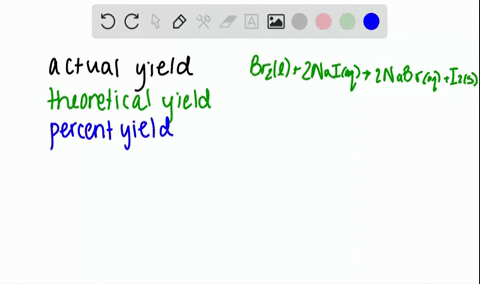 actual yield
theoretical yield
percent yield
Br₂(l) + 2NaI(aq) → 2NaBr(aq) + I₂(s)